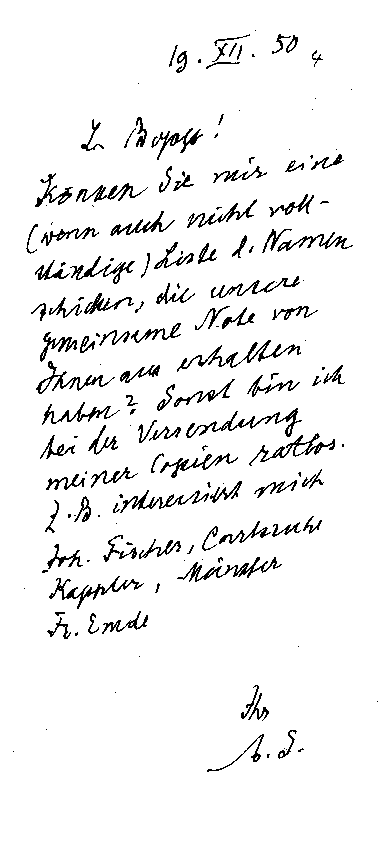 19. XII. 50
L. Bopp!
Können Sie mir eine
(wenn auch nicht voll-
ständige) Liste d. Namen
schicken, die unsere
gemeinsame Note von
Ihnen aus erhalten
haben? Sonst bin ich
bei der Versendung
meiner Copien ratlos.
Z. B. interessiert mich
Joh. Fischer, Carlsruhe
Kappler, Münster
Fr. Emde
Ihr
A. S.